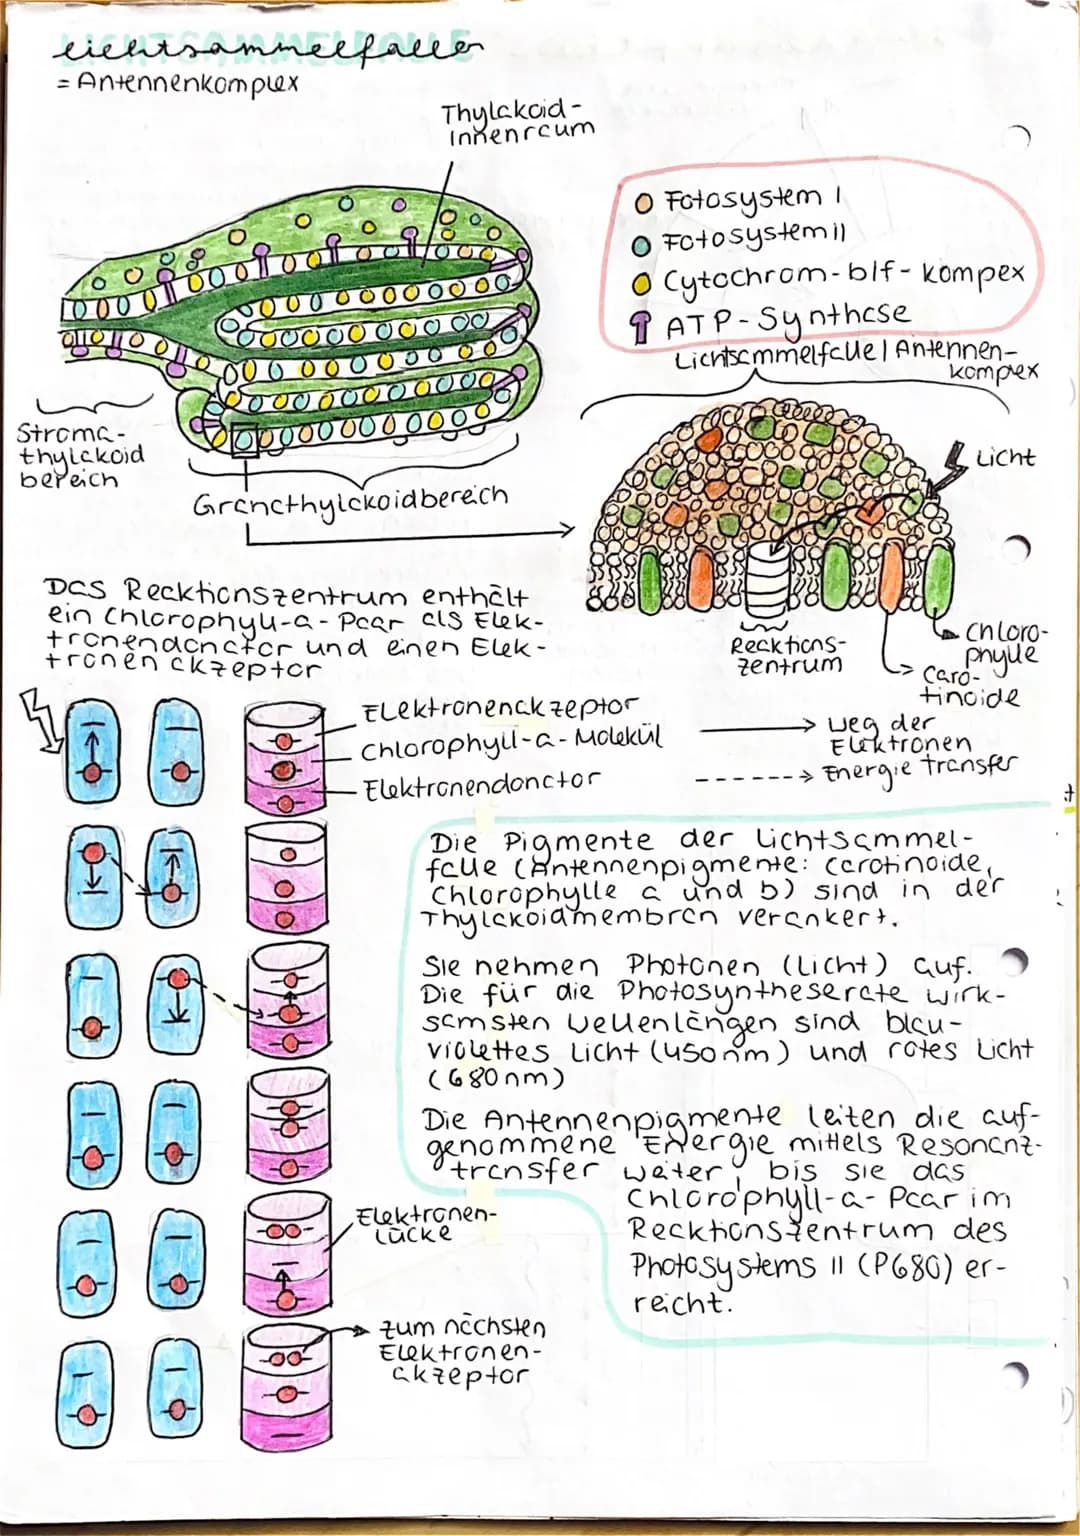 Lichtsammelfallen
= Antennenkomplex
Thylakoid-
innenraum
Fotosystem I
Fotosystem II
Cytochrom-b/f-Kompex
ATP-Synthase
Lichtsammelfalle | Antennen-
komplex
Stroma-
thylakoid
bereich
Granathylakoidbereich
Licht
Reaktions-
zentrum
Chloro-
phylle
Caro-
tinoide
Das Reaktionszentrum enthält
ein Chlorophyll-a-Paar als Elek-
tronendonator und einen Elek-
tronenakzeptor
Elektronenakzeptor
Chlorophyll-a-Molekül
Elektronendonator
Weg der
Elektronen
Energietransfer
Die Pigmente der Lichtsammel-
falle (Antennenpigmente: Carotinoide,
Chlorophylle a und b) sind in der
Thylakoidmembran verankert.
Sie nehmen Photonen (Licht) auf.
Die für die Photosyntheserate wirk-
samsten Wellenlängen sind blau-
violettes Licht (450nm) und rotes Licht
(680nm)
Die Antennenpigmente leiten die auf-
genommene Energie mittels Resonanz-
transfer weiter, bis sie das
Chlorophyll-a-Paar im
Reaktionszentrum des
Photosystems II (P680) er-
reicht.
Elektronen-
lücke
zum nächsten
Elektronen-
akzeptor